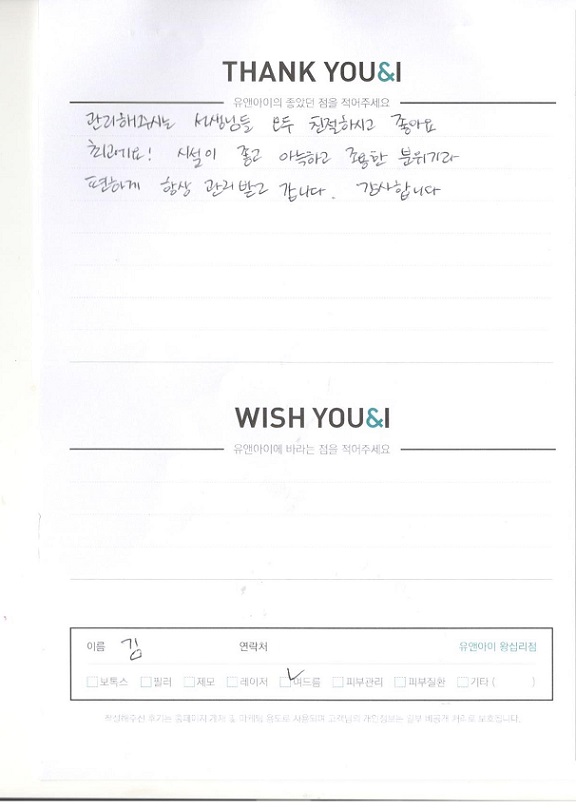 THANK YOU&I
유앤아이의 좋았던 점을 적어주세요
관리해주시는 선생님들 모두 친절하시고 좋아요
최고에요! 시설이 좋고 아늑하고 조용한 분위기라
편하게 항상 관리받고 갑니다. 감사합니다
WISH YOU&I
유앤아이에 바라는 점을 적어주세요
이름 김 연락처 유앤아이 왕십리점
보톡스 필러 제모 레이저 여드름 피부관리 피부질환 기타 ( )
작성해주신 후기는 홈페이지 게재 및 마케팅 용도로 사용되며 고객님의 개인정보는 일부 비공개 처리로 보호됩니다.